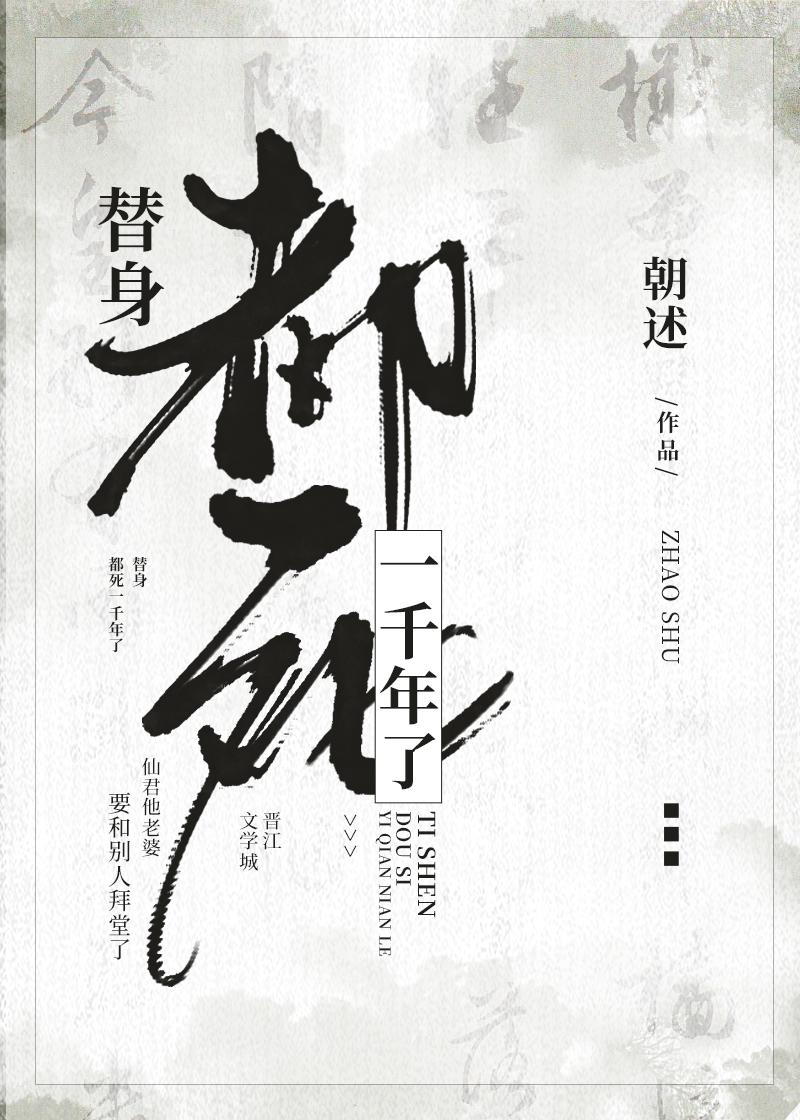 替身
都死
一千年了
朝述
/作品/
ZHAO SHU
替身
都死一千年了
仙君他老婆
要和别人拜堂了
晋江
文学城
>>>
TI SHEN
DOU SI
YI QIAN NIAN LE